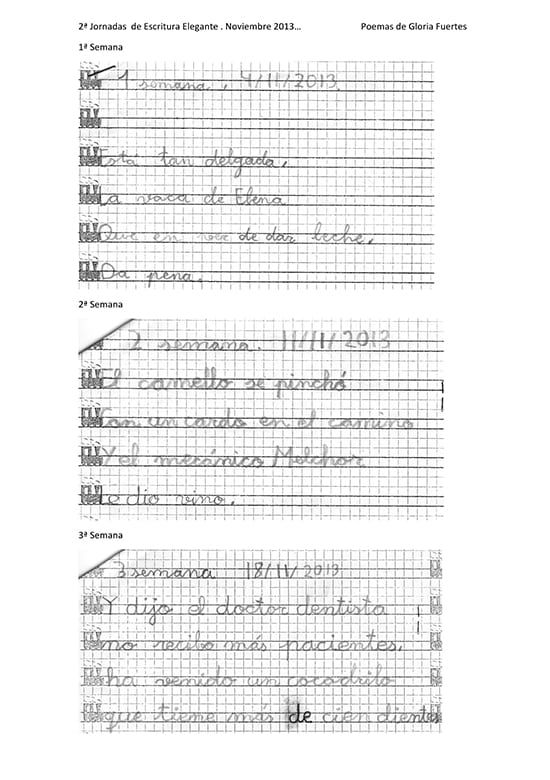 2ª Jornadas de Escritura Elegante . Noviembre 2013... Poemas de Gloria Fuertes
1ª Semana
1 semana , 4/11/2013
Está tan delgada,
La vaca de Elena
Que en vez de dar leche,
Da pena.
2ª Semana
2 semana. 11/11/2013
El camello se pinchó
Con un cardo en el camino
Y el mecánico Melchor
Le dio vino.
3ª Semana
3 semana 18/11/2013
Y dijo el doctor dentista
no recibo más pacientes,
ha venido un cocodrilo
que tiene más de cien dientes